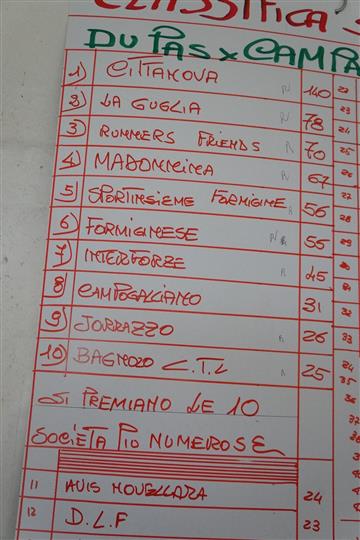 CLASSIFICA'S
DU PAS X CAMPA
1) CITTANOVA 140
2) LA GUGLIA 78
3) RUNNERS FRIENDS 70
4) MADONNINA 67
5) SPORTINSIEME FORMIGINE 56
6) FORMIGINESE 56
7) INTERFORZE 45
8) CAMPOGALLIANO 31
9) JORRAZZO 26
10) BAGNOLO C.T.L 25
SI PREMIANO LE 10
SOCIETA PIÙ NUMEROSE
11 AVIS NOVELLARA 24
12 D.L.F 23